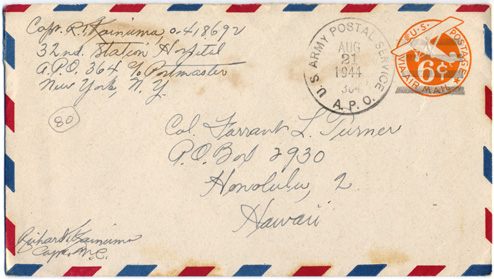 Capt. R. Kainuma, O-418692
32nd. Station Hospital
A.P.O. 364 c/o Postmaster
New York, N.Y.
80
U.S. ARMY POSTAL SERVICE
AUG
21
1944
364
A.P.O.
U.S. POSTAGE
6¢
VIA AIR MAIL
Col. Farrant L. Turner
P.O. Box 2930
Honolulu, 2
Hawaii
Richard Kainuma
Capt. M.C.